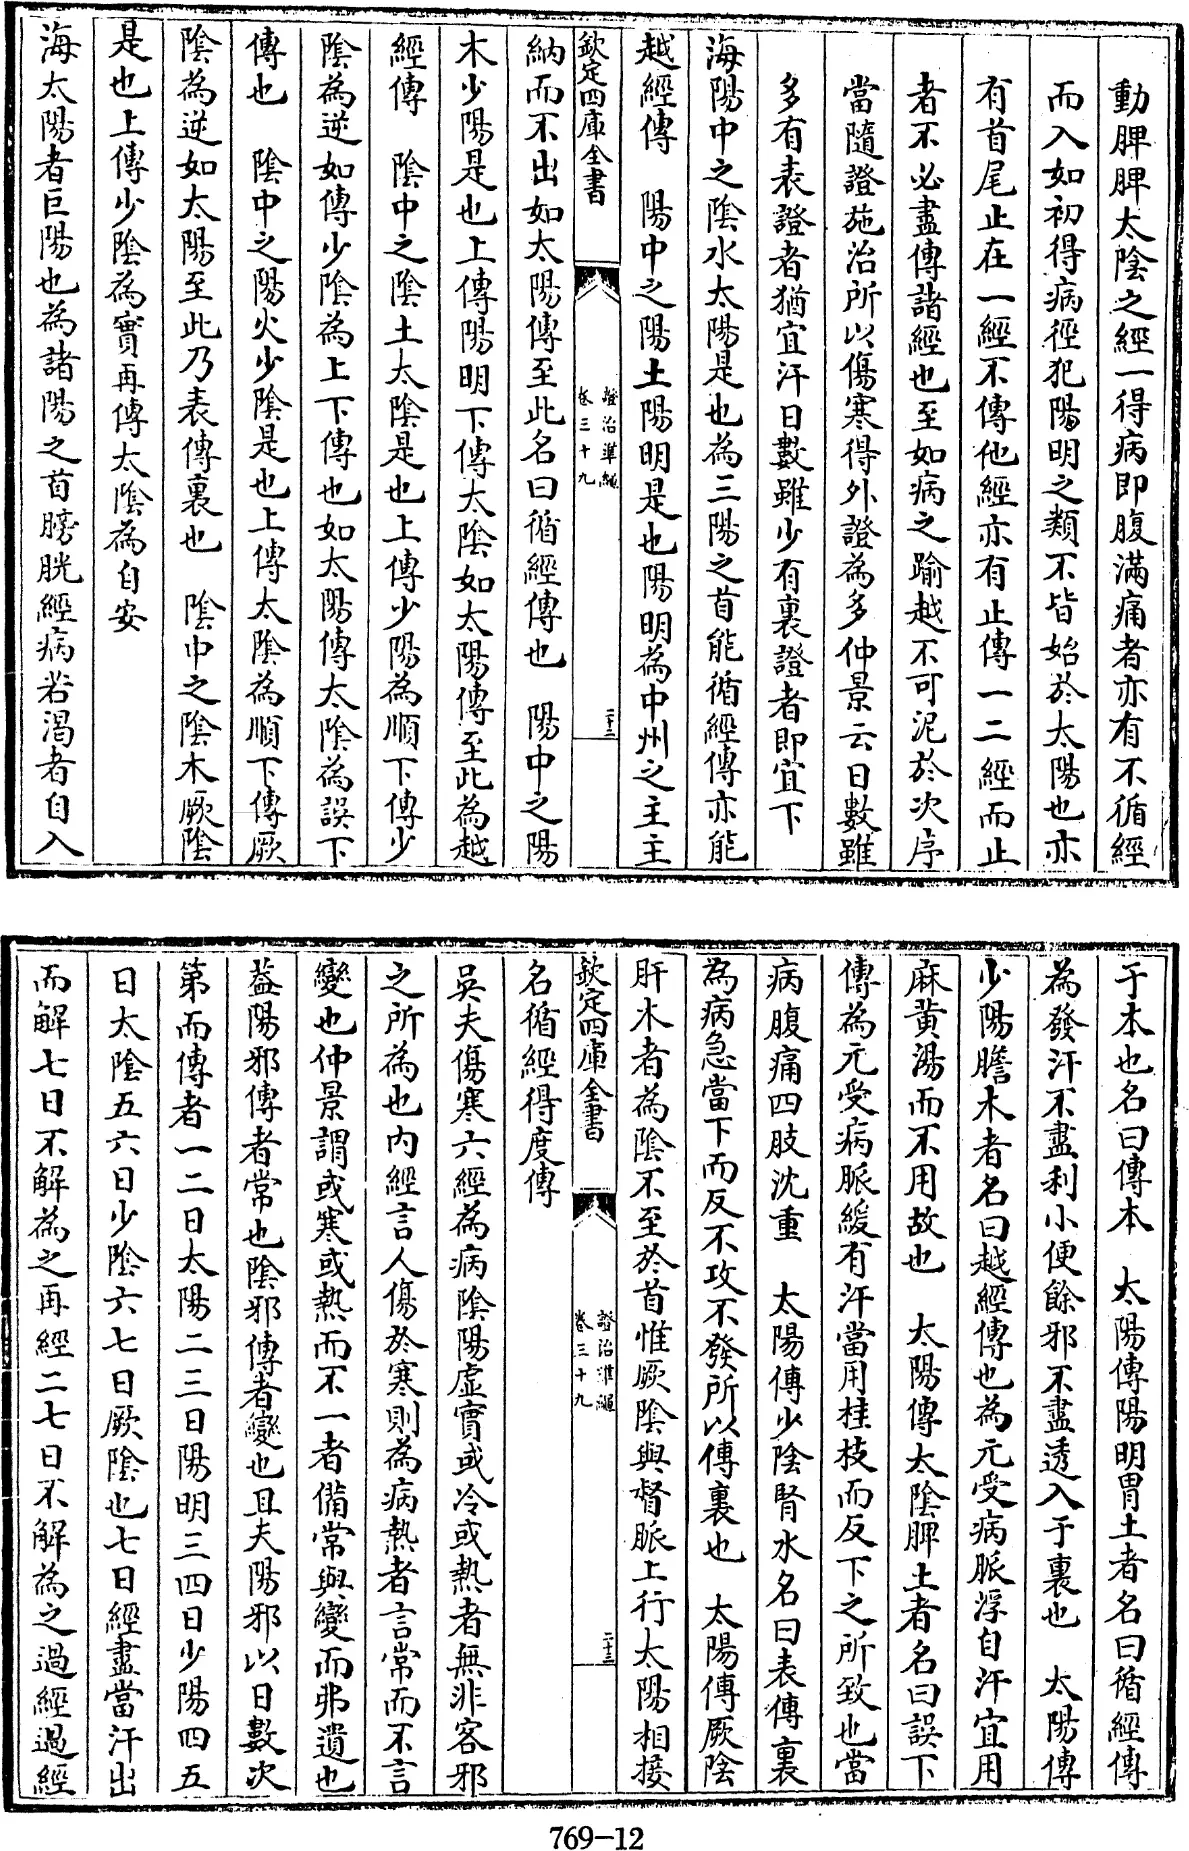 動脾脾太陰之經一得病即腹滿痛者亦有不循經
而入如初得病徑犯陽明之類不皆始於太陽也亦
有首尾止在一經不傳他經亦有止傳一二經而止
者不必盡傳諸經也至如病之踰越不可泥於次序
當隨證施治所以傷寒得外證為多仲景云日數雖
多有表證者猶宜汗日數雖少有裏證者即宜下
海陽中之陰水太陽是也為三陽之首能循經傳亦能
越經傳　陽中之陽土陽明是也陽明為中州之主主
欽定四庫全書
證治準繩
卷三十九
二十三
納而不出如太陽傳至此名曰循經傳也　陽中之陽
木少陽是也上傳陽明下傳太陰如太陽傳至此為越
經傳　陰中之陰土太陰是也上傳少陽為順下傳少
陰為逆如傳少陰為上下傳也如太陽傳太陰為誤下
傳也　陰中之陽火少陰是也上傳太陰為順下傳厥
陰為逆如太陽至此乃表傳裏也　陰中之陰木厥陰
是也上傳少陰為實再傳太陰為自安
海太陽者巨陽也為諸陽之首膀胱經病若渴者自入
于本也名曰傳本　太陽傳陽明胃土者名曰循經傳
為發汗不盡利小便餘邪不盡透入于裏也　太陽傳
少陽膽木者名曰越經傳也為元受病脈浮自汗宜用
麻黄湯而不用故也　太陽傳太陰脾土者名曰誤下
傳為元受病脈緩有汗當用桂枝而反下之所致也當
病腹痛四肢沈重　太陽傳少陰腎水名曰表傳裏
為病急當下而反不攻不發所以傳裏也　太陽傳厥陰
肝木者為陰不至於首惟厥陰與督脈上行太陽相接
欽定四庫全書
證治準繩
卷三十九
二十三
名循經得度傳
吳夫傷寒六經為病陰陽虛實或冷或熱者無非客邪
之所為也内經言人傷於寒則為病熱者言常而不言
變也仲景謂或寒或熱而不一者備常與變而弗遺也
蓋陽邪傳者常也陰邪傳者變也且夫陽邪以日數次
第而傳者一二日太陽二三日陽明三四日少陽四五
日太陰五六日少陰六七日厥陰也七日經盡當汗出
而解七日不解為之再經二七日不解為之過經過經
769-12